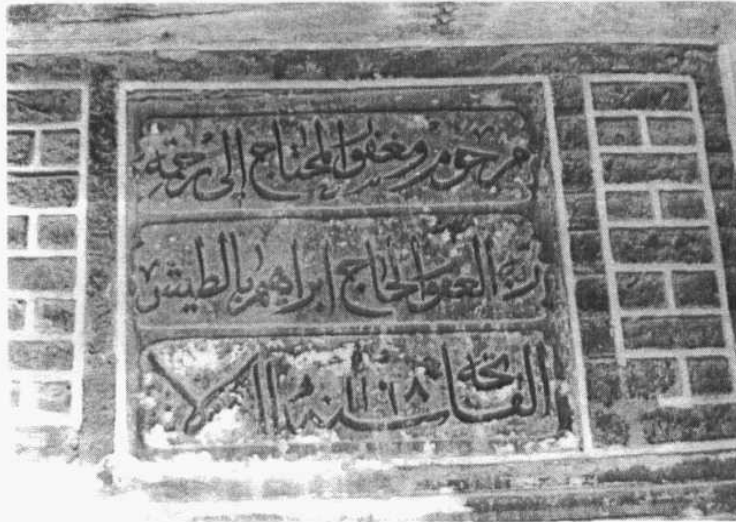 مرحوم ومغفور المحتاج إلى رحمة
ربه الغفور الحاج ابراهيم بالطيش
الفاتحة سنه